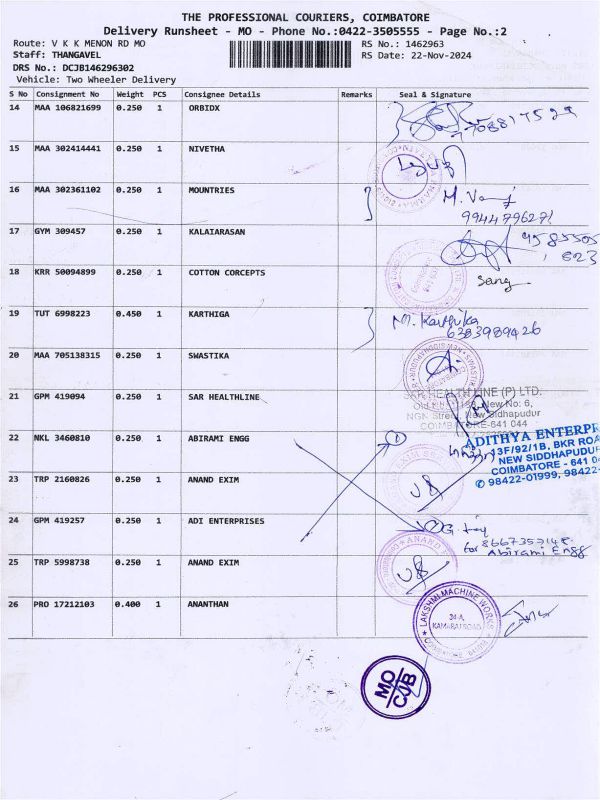 THE PROFESSIONAL COURIERS, COIMBATORE
Delivery Runsheet - MO - Phone No.:0422-3505555 - Page No.:2
Route: V K K MENON RD MO RS No.: 1462963
Staff: THANGAVEL RS Date: 22-Nov-2024
DRS No.: DCJB146296302
Vehicle: Two Wheeler Delivery
S No Consignment No Weight PCS Consignee Details Remarks Seal & Signature
14 MAA 106821699 0.250 1 ORBIDX
15 MAA 302414441 0.250 1 NIVETHA
16 MAA 302361102 0.250 1 MOUNTRIES
9944796271
17 GYM 309457 0.250 1 KALAIARASAN
18 KRR 50094899 0.250 1 COTTON CORCEPTS
Sang
19 TUT 6998223 0.450 1 KARTHIGA
M. Karthika
6383989426
20 MAA 705138315 0.250 1 SWASTIKA
21 GPM 419094 0.250 1 SAR HEALTHLINE
SAR HEALTH LINE (P) LTD.
New No: 6,
New Sidhapudur
COIMBATORE-641 044
22 NKL 3460810 0.250 1 ABIRAMI ENGG
ADITHYA ENTERPR
13F/92/1B, BKR ROA
NEW SIDDHAPUDU
COIMBATORE - 641 0
✆ 98422-01999, 98422
23 TRP 2160826 0.250 1 ANAND EXIM
24 GPM 419257 0.250 1 ADI ENTERPRISES
for
Abirami Engg
25 TRP 5998738 0.250 1 ANAND EXIM
26 PRO 17212103 0.400 1 ANANTHAN
LAKSHMI MACHINE WORKS
34-A,
KAMARAJ ROAD
MO
CJB